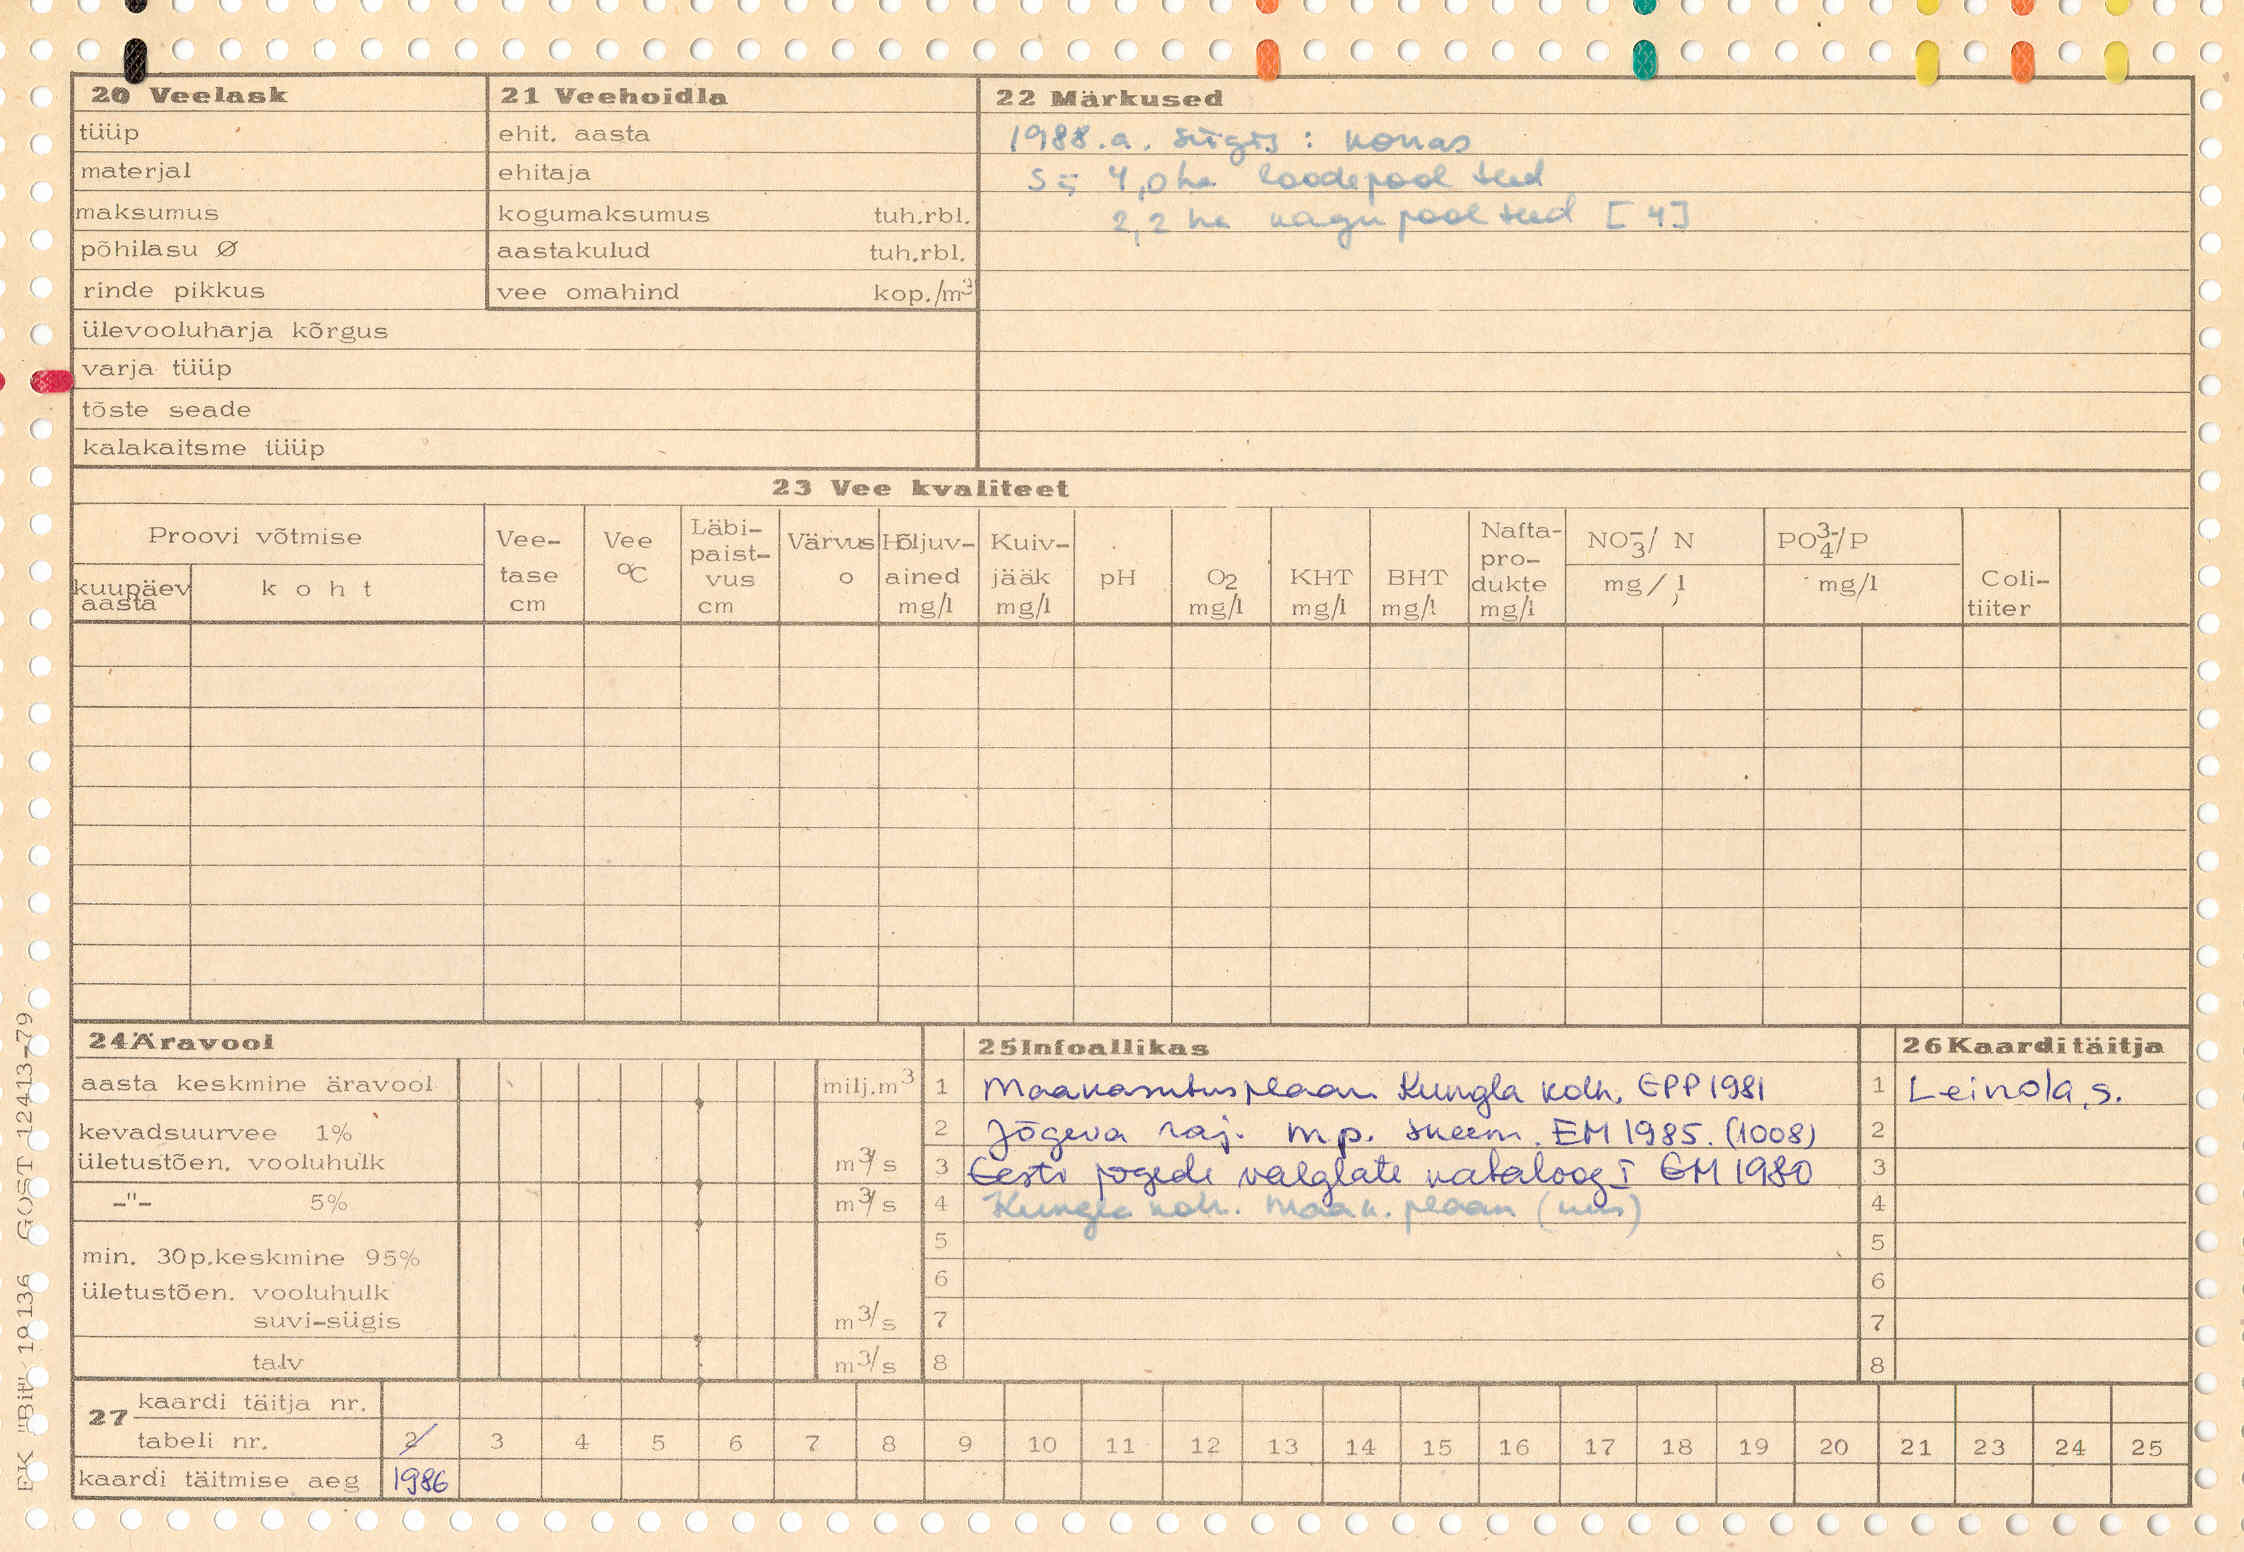 20 Veelask
tüüp
materjal
maksumus
põhilasu Ø
rinde pikkus
ülevooluharja kõrgus
varja tüüp
tõste seade
kalakaitsme tüüp
21 Veehoidla
ehit. aasta
ehitaja
kogumaksumus tuh.rbl.
aastakulud tuh.rbl.
vee omahind kop./m³
22 Märkused
1988.a. sügis : korras
S = 4,0 ha loodepool teed
2,2 ha kagupool teed [4]
23 Vee kvaliteet
Proovi võtmise
kuupäev
aasta
koht
Vee-
tase
cm
Vee
°C
Läbi-
paist-
vus
cm
Värvus
o
Hõljuv-
ained
mg/l
Kuiv-
jääk
mg/l
pH
O2
mg/l
KHT
mg/l
BHT
mg/l
Nafta-
pro-
dukte
mg/l
NO₃⁻/ N
mg/l
PO₄³⁻/P
mg/l
Coli-
tiiter
24 Äravool
aasta keskmine äravool milj.m³
kevadsuurvee 1%
ületustõen. vooluhulk m³/s
-"- 5% m³/s
min. 30p.keskmine 95%
ületustõen. vooluhulk
suvi-sügis m³/s
talv m³/s
25 Infoallikas
1 Maakasutusplaan Kungla kolh. EPP 1981
2 Jõgeva raj. m.p. skeem. EM 1985. (1008)
3 Eesti jõgede valglate kataloog I EM 1980
4 Kungla kolh. maak. plaan (uus)
5
6
7
8
26 Kaardi täitja
1 Leinola, S.
2
3
4
5
6
7
8
27
kaardi täitja nr.
tabeli nr. 2 3 4 5 6 7 8 9 10 11 12 13 14 15 16 17 18 19 20 21 23 24 25
kaardi täitmise aeg 1986
EK "Bit" 19136 GOST 12413-79